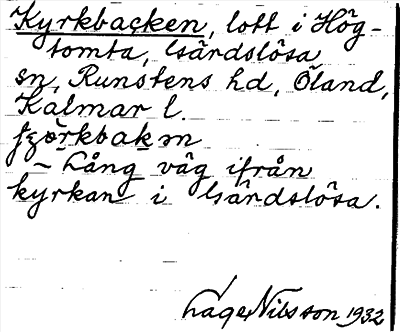 Kyrkbacken, lott i Hög-
tomta, Gärdslösa
sn, Runstens hd, Öland,
Kalmar l.
~ Lång väg ifrån
kyrkan i Gärdslösa.
Lage Nilsson 1932